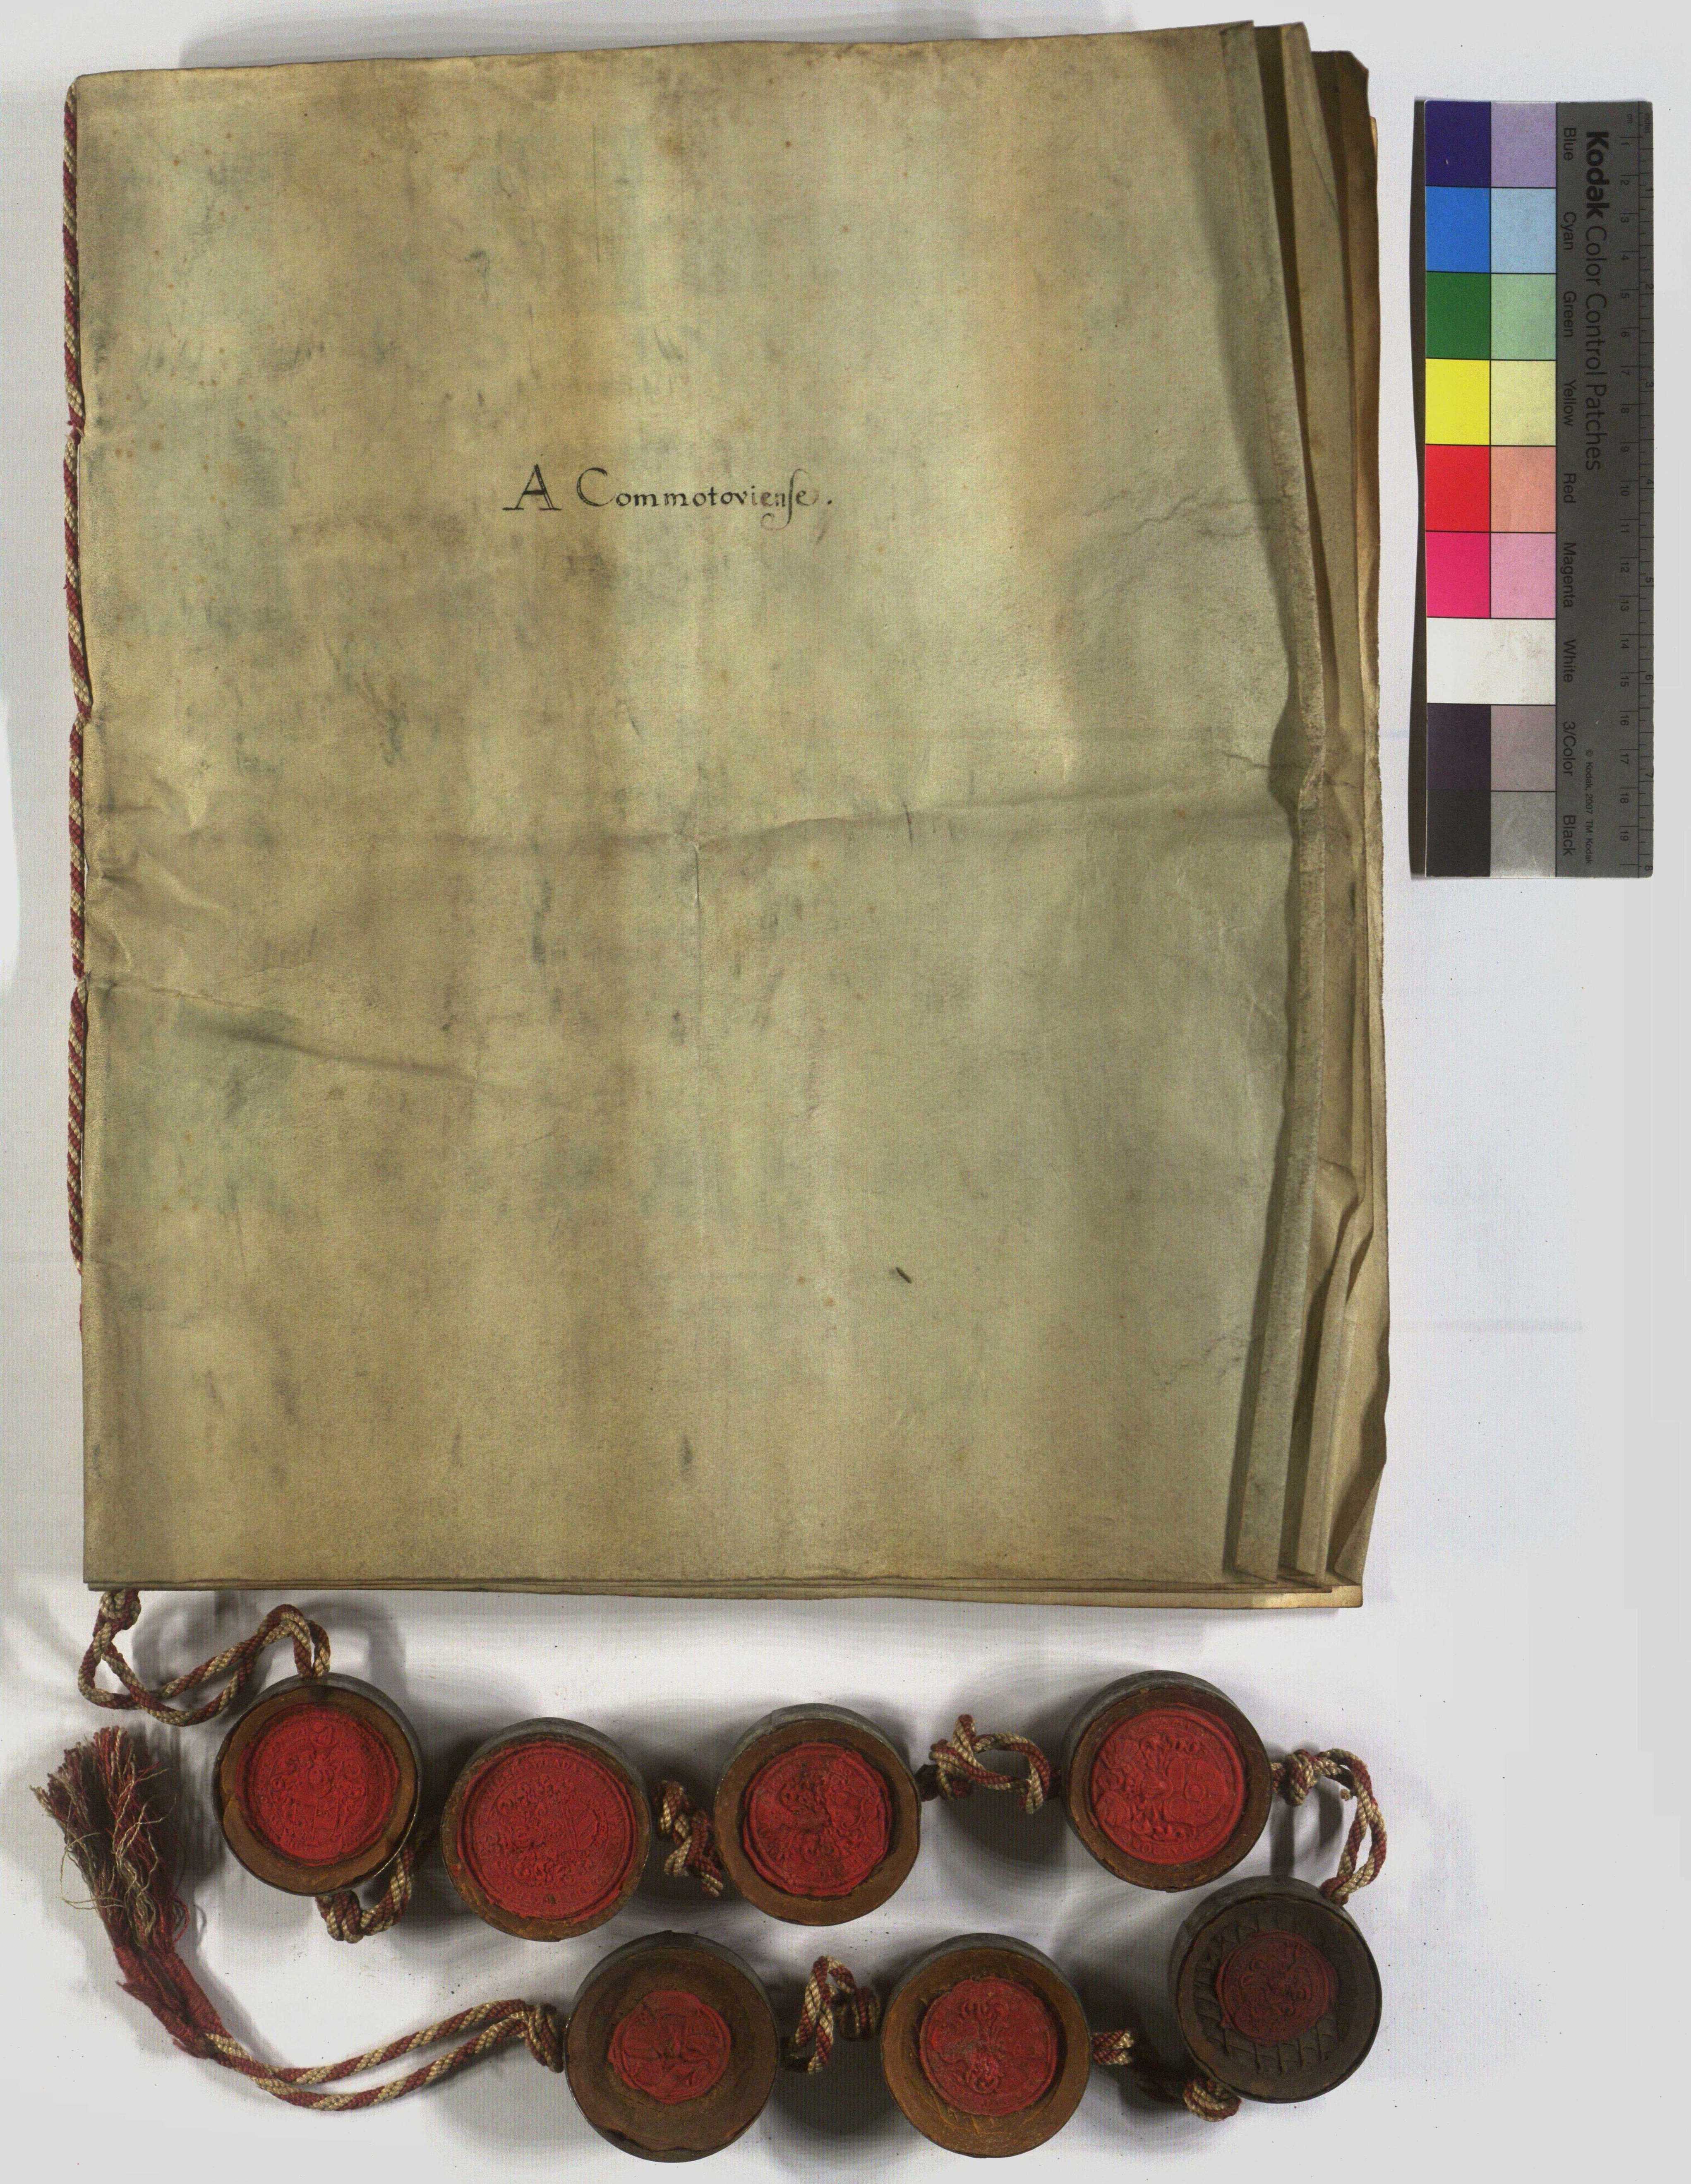 A Commotovienſe.
Kodak Color Control Patches
Blue Cyan Green Yellow Red Magenta White 3/Color Black
© Kodak, 2007 TM: Kodak
inches 1 2 3 4 5 6 7 8
cm 1 2 3 4 5 6 7 8 9 10 11 12 13 14 15 16 17 18 19